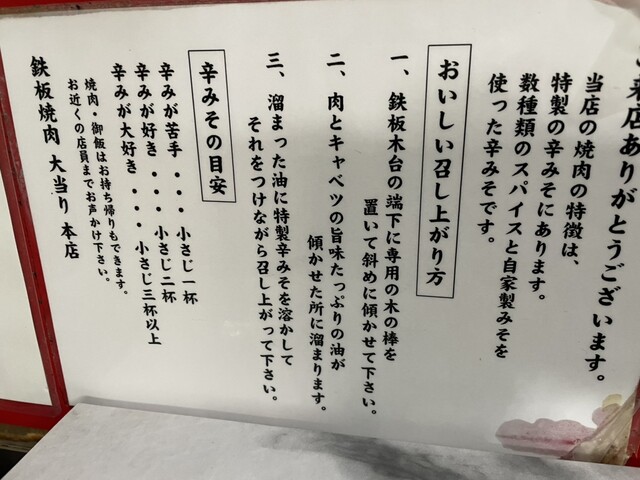 ご来店ありがとうございます。
当店の焼肉の特徴は、
特製の辛みそにあります。
数種類のスパイスと自家製みそを
使った辛みそです。
おいしい召し上がり方
一、鉄板木台の端下に専用の木の棒を
置いて斜めに傾かせて下さい。
二、肉とキャベツの旨味たっぷりの油が
傾かせた所に溜まります。
三、溜まった油に特製辛みそを溶かして
それをつけながら召し上がって下さい。
辛みその目安
辛みが苦手・・・小さじ一杯
辛みが好き・・・小さじ二杯
辛みが大好き・・・小さじ三杯以上
焼肉・御飯はお持ち帰りもできます。
お近くの店員までお声かけ下さい。
鉄板焼肉 大当り 本店